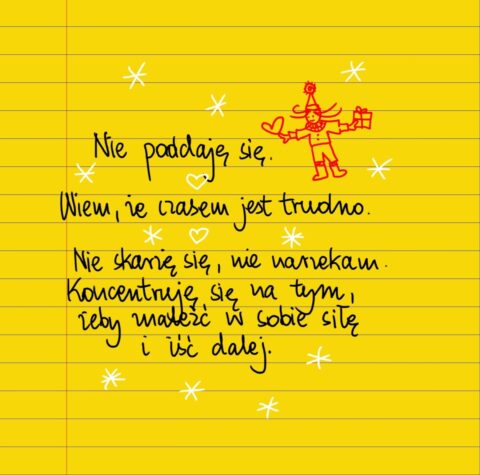 Nie poddaję się.
Wiem, że czasem jest trudno.
Nie skarżę się, nie narzekam.
Koncentruję się na tym,
żeby znaleźć w sobie siłę
i iść dalej.